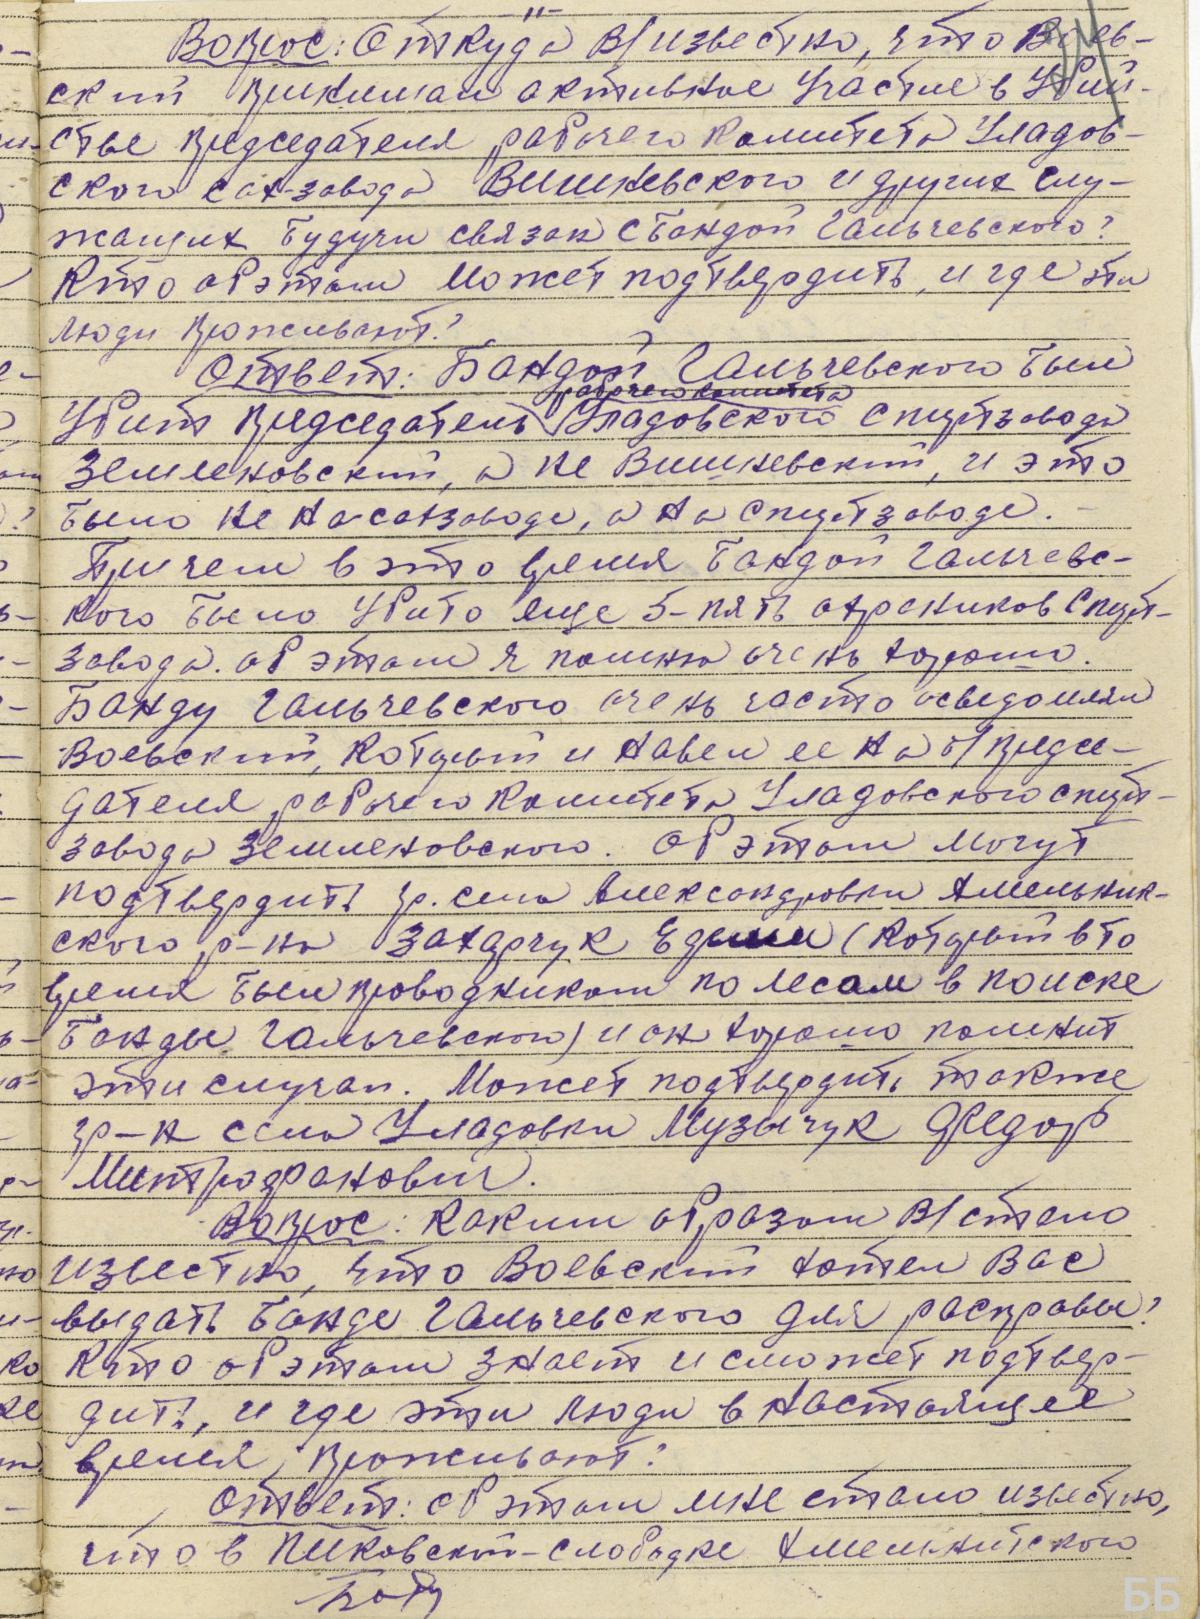 -"-
Вопрос: Откуда В/известно, что Воев-
ский принимал активное участие в убий-
стве председателя рабочего комитета Уладов-
ского сах-завода Вишневского и других слу-
жащих будучи связан с бандой Гальчевского?
Кто об этом может подтвердить, и где эти
люди проживают?
Ответ: Бандой Гальчевского был
рабочего комитета
убит председатель Уладовского спиртзавода
Землековский, а не Вишневский, и это
было не на сахзаводе, а на спиртзаводе.
Причем в это время бандой Гальчевс-
кого было убито еще 5-пять охраников спирт-
завода. Об этом я помню очень хорошо.
Банду Гальчевского очень часто осведомлял
Воевский, который и навел ее на б/предсе-
дателя рабочего комитета Уладовского спирт-
завода Землековского. Об этом могут
подтвердить гр. села Александровки Хмельник-
ского р-на Захарчук (который в то
время был проводником по лесам в поиске
банды Гальчевского) и он хорошо помнит
эти случаи. Может подтвердить также
гр-н села Уладовки Музычук Федор
Митрофанович.
Вопрос: Каким образом В/стало
известно, что Воевский хотел Вас
выдать банде Гальчевского для расправы?
Кто об этом знает и сможет подтвер-
дить, и где эти люди в настоящее
время проживают?
Ответ: Об этом мне стало известно,
что в Пиковский-слободке Хмельнитского
ББ